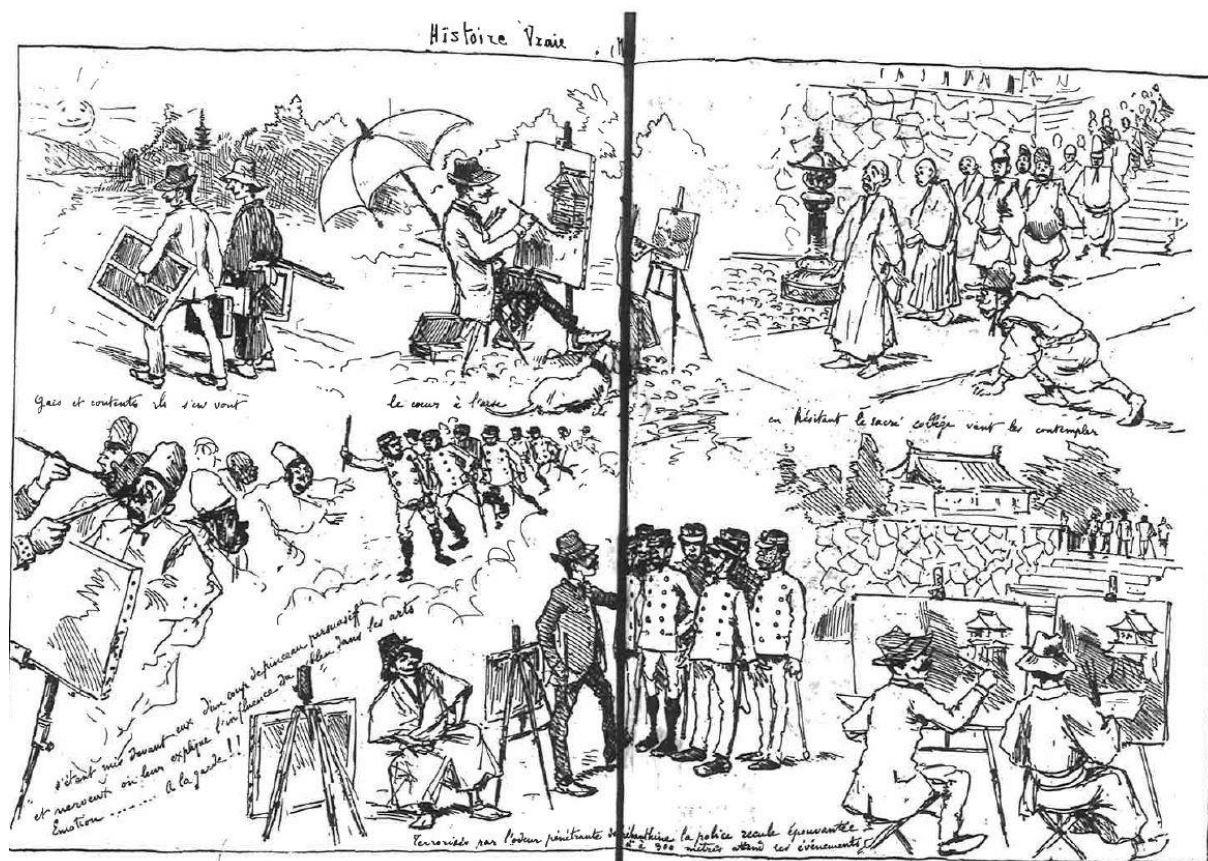 Histoire Vraie
Gais et contents ils s'en vont
le cœur à l'aise
en hésitant le sacré collège vient les contempler
s'étant mis devant eux d'un coup de pinceau persuasif
et nerveux on leur explique l'influence du bleu dans les arts
Emotion ........ A la garde!!
Terrorisés par l'odeur pénétrante de la police recule épouvantée
à 300 mètres attend les événements